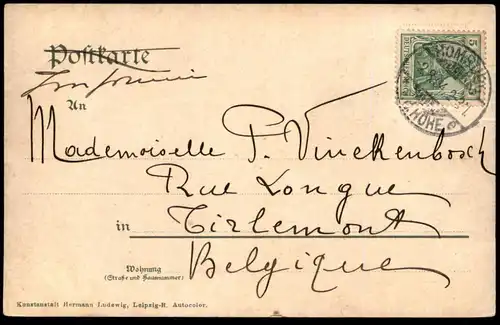 Postkarte
An
Mademoiselle P. Vinckenbosch
Rue Longue
in Tirlemont
Belgique
Wohnung
(Straße und Hausnummer)
Kunstanstalt Hermann Ludewig, Leipzig-R. Autocolor.
5
HOMBURG
HÖHE